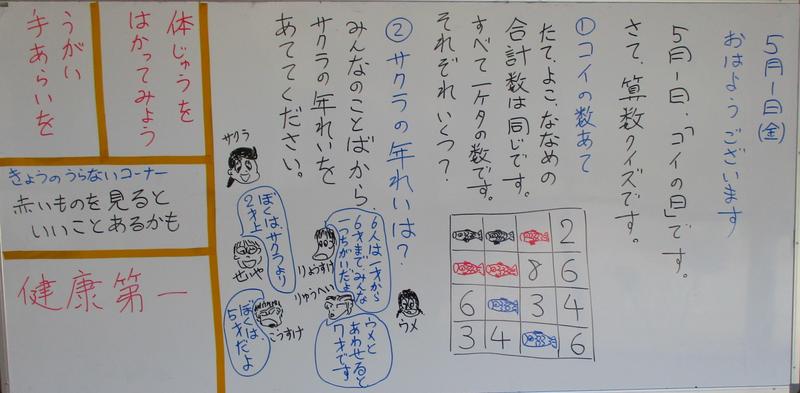 5月1日(金)
おはようございます
5月1日、「コイの日」です。
さて、算数クイズです。
①コイの数あて
たて、よこ、ななめの
合計数は同じです。
すべて一ケタの数です。
それぞれいくつ？
2
8 6
6 3 4
3 4 6
②サクラの年れいは？
みんなのことばから、
サクラの年れいを
あててください。
サクラ
ぼくは、サクラより
2才上
せいや
6人は一才から
6才まで、みんな
一つちがいだよ
りょうすけ
りゅうへい
ウメと
あわせると
7才です
ウメ
ぼくは、
5才だよ
こうすけ
体じゅうを
はかってみよう
うがい
手あらいを
きょうのうらないコーナー
赤いものを見ると
いいことあるかも
健康第一